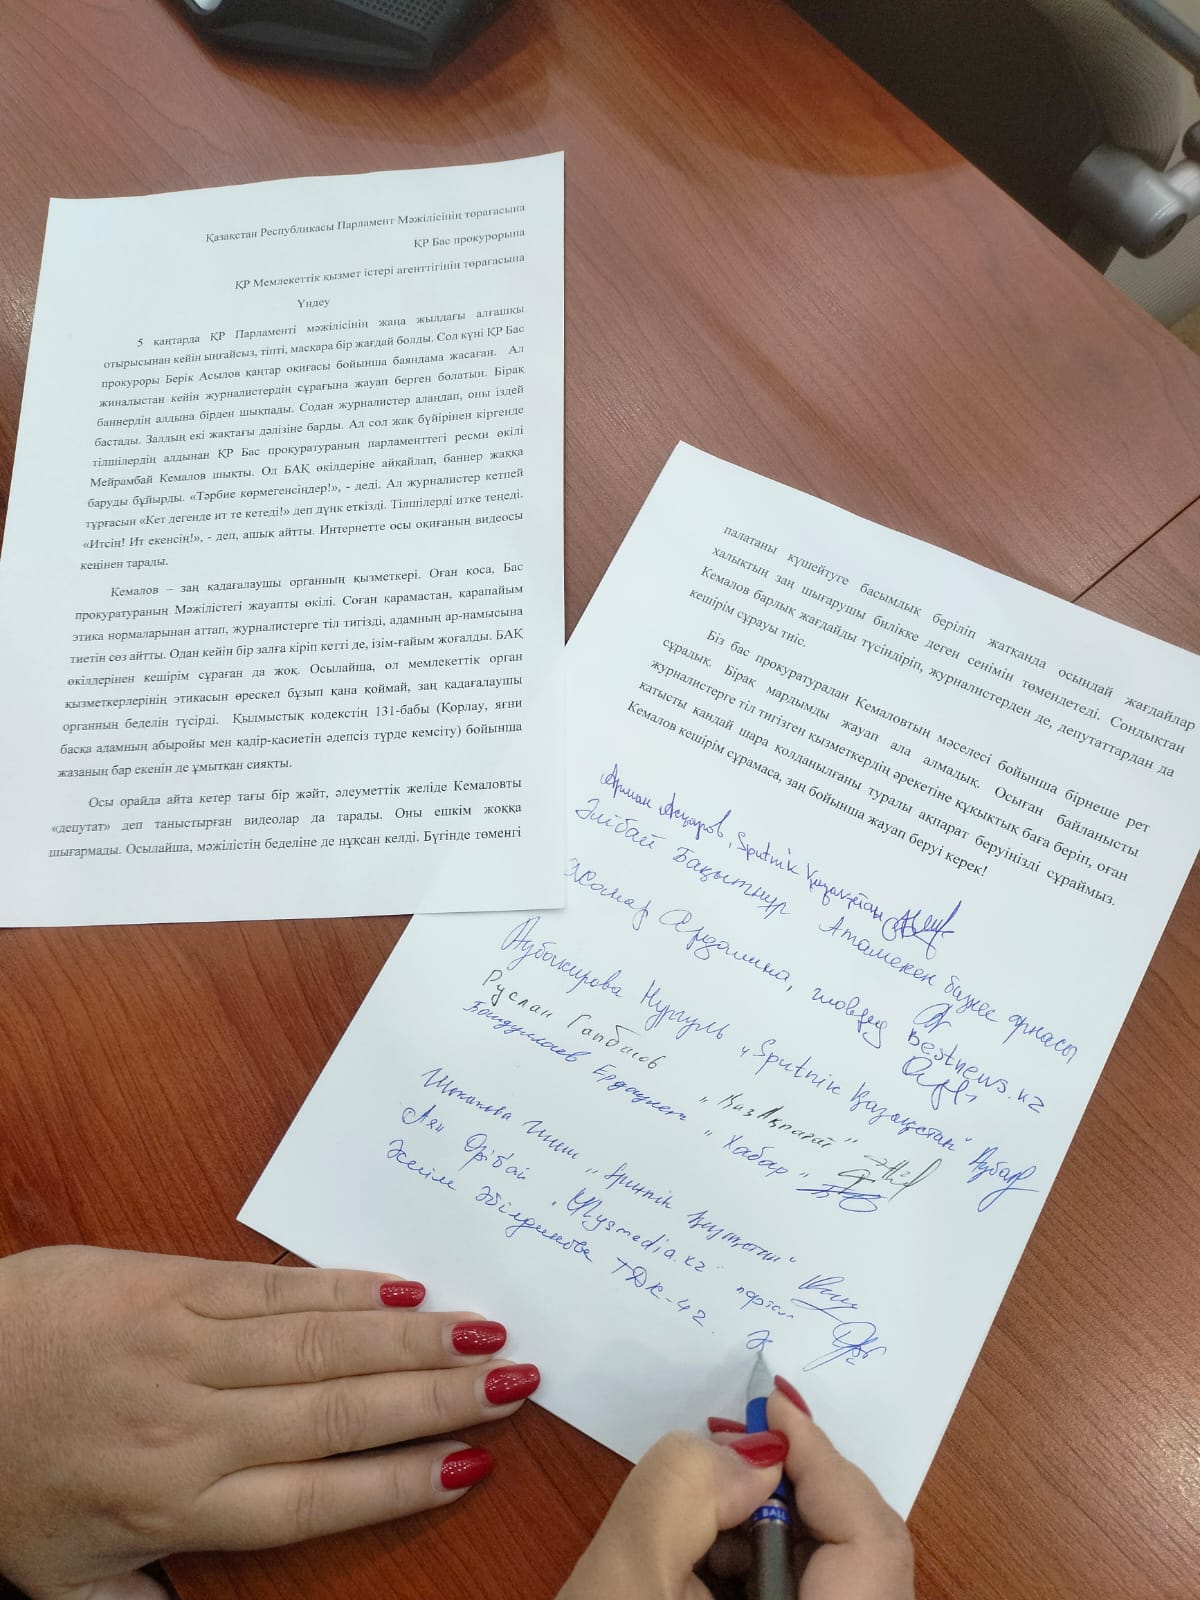 Қазақстан Республикасы Парламент Мәжілісінің төрағасына
ҚР Бас прокурорына
ҚР Мемлекеттік қызмет істері агенттігінің төрағасына
Үндеу
5 қаңтарда ҚР Парламенті мәжілісінің жаңа жылдағы алғашқы
отырысынан кейін ыңғайсыз, тіпті, масқара бір жағдай болды. Сол күні ҚР Бас
прокуроры Берік Асылов қаңтар оқиғасы бойынша баяндама жасаған. Ал
жиналыстан кейін журналистердің сұрағына жауап берген болатын. Бірақ
баннердің алдына бірден шықпады. Содан журналистер алаңдап, оны іздей
бастады. Залдың екі жақтағы дәлізіне барды. Ал сол жақ бүйірінен кіргенде
тілшілердің алдынан ҚР Бас прокуратураның парламенттегі ресми өкілі
Мейрамбай Кемалов шықты. Ол БАҚ өкілдеріне айқайлап, баннер жаққа
баруды бұйырды. «Тәрбие көрмегенсіңдер!», - деді. Ал журналистер кетпей
тұрғасын «Кет дегенде ит те кетеді!» деп дүңк еткізді. Тілшілерді итке теңеді.
«Итсің! Ит екенсің!», - деп, ашық айтты. Интернетте осы оқиғаның видеосы
кеңінен тарады.
Кемалов – заң қадағалаушы органның қызметкері. Оған қоса, Бас
прокуратураның Мәжілістегі жауапты өкілі. Соған қарамастан, қарапайым
этика нормаларынан аттап, журналистерге тіл тигізді, адамның ар-намысына
тиетін сөз айтты. Одан кейін бір залға кіріп кетті де, ізім-ғайым жоғалды. БАҚ
өкілдерінен кешірім сұраған да жоқ. Осылайша, ол мемлекеттік орган
қызметкерлерінің этикасын өрескел бұзып қана қоймай, заң қадағалаушы
органның беделін түсірді. Қылмыстық кодекстің 131-бабы (Қорлау, яғни
басқа адамның абыройы мен қадір-қасиетін әдепсіз түрде кемсіту) бойынша
жазаның бар екенін де ұмытқан сияқты.
Осы орайда айта кетер тағы бір жәйт, әлеуметтік желіде Кемаловты
«депутат» деп таныстырған видеолар да тарады. Оны ешкім жоққа
шығармады. Осылайша, мәжілістің беделіне де нұқсан келді. Бүгінде төменгі
палатаны күшейтуге басымдық беріліп жатқанда осындай жағдайлар
халықтың заң шығарушы билікке деген сенімін төмендетеді. Сондықтан
Кемалов барлық жағдайды түсіндіріп, журналистерден де, депутаттардан да
кешірім сұрауы тиіс.
Біз бас прокуратурадан Кемаловтың мәселесі бойынша бірнеше рет
сұрадық. Бірақ мардымды жауап ала алмадық. Осыған байланысты
журналистерге тіл тигізген қызметкердің әрекетіне құқықтық баға беріп, оған
қатысты қандай шара қолданылғаны туралы ақпарат беруіңізді сұраймыз.
Кемалов кешірім сұрамаса, заң бойынша жауап беруі керек!
Арман Асқаров, Sputnik Қазақстан
Әлібай Бақытнұр Атамекен бизнес арнасы
Жомар Ардашина, шовред Bestnews.kz
Аубакирова Нургуль "Sputnik Қазақстан" Аубак
Руслан Ғаббасов "ҚазАқпарат"
Байдуллаев Ердаулет "Хабар"
"Sputnik Қазақстан"
Аян Өрібай "Ulysmedia.kz" портал
Әсем Әбілдинова ТДК-42.
BALL